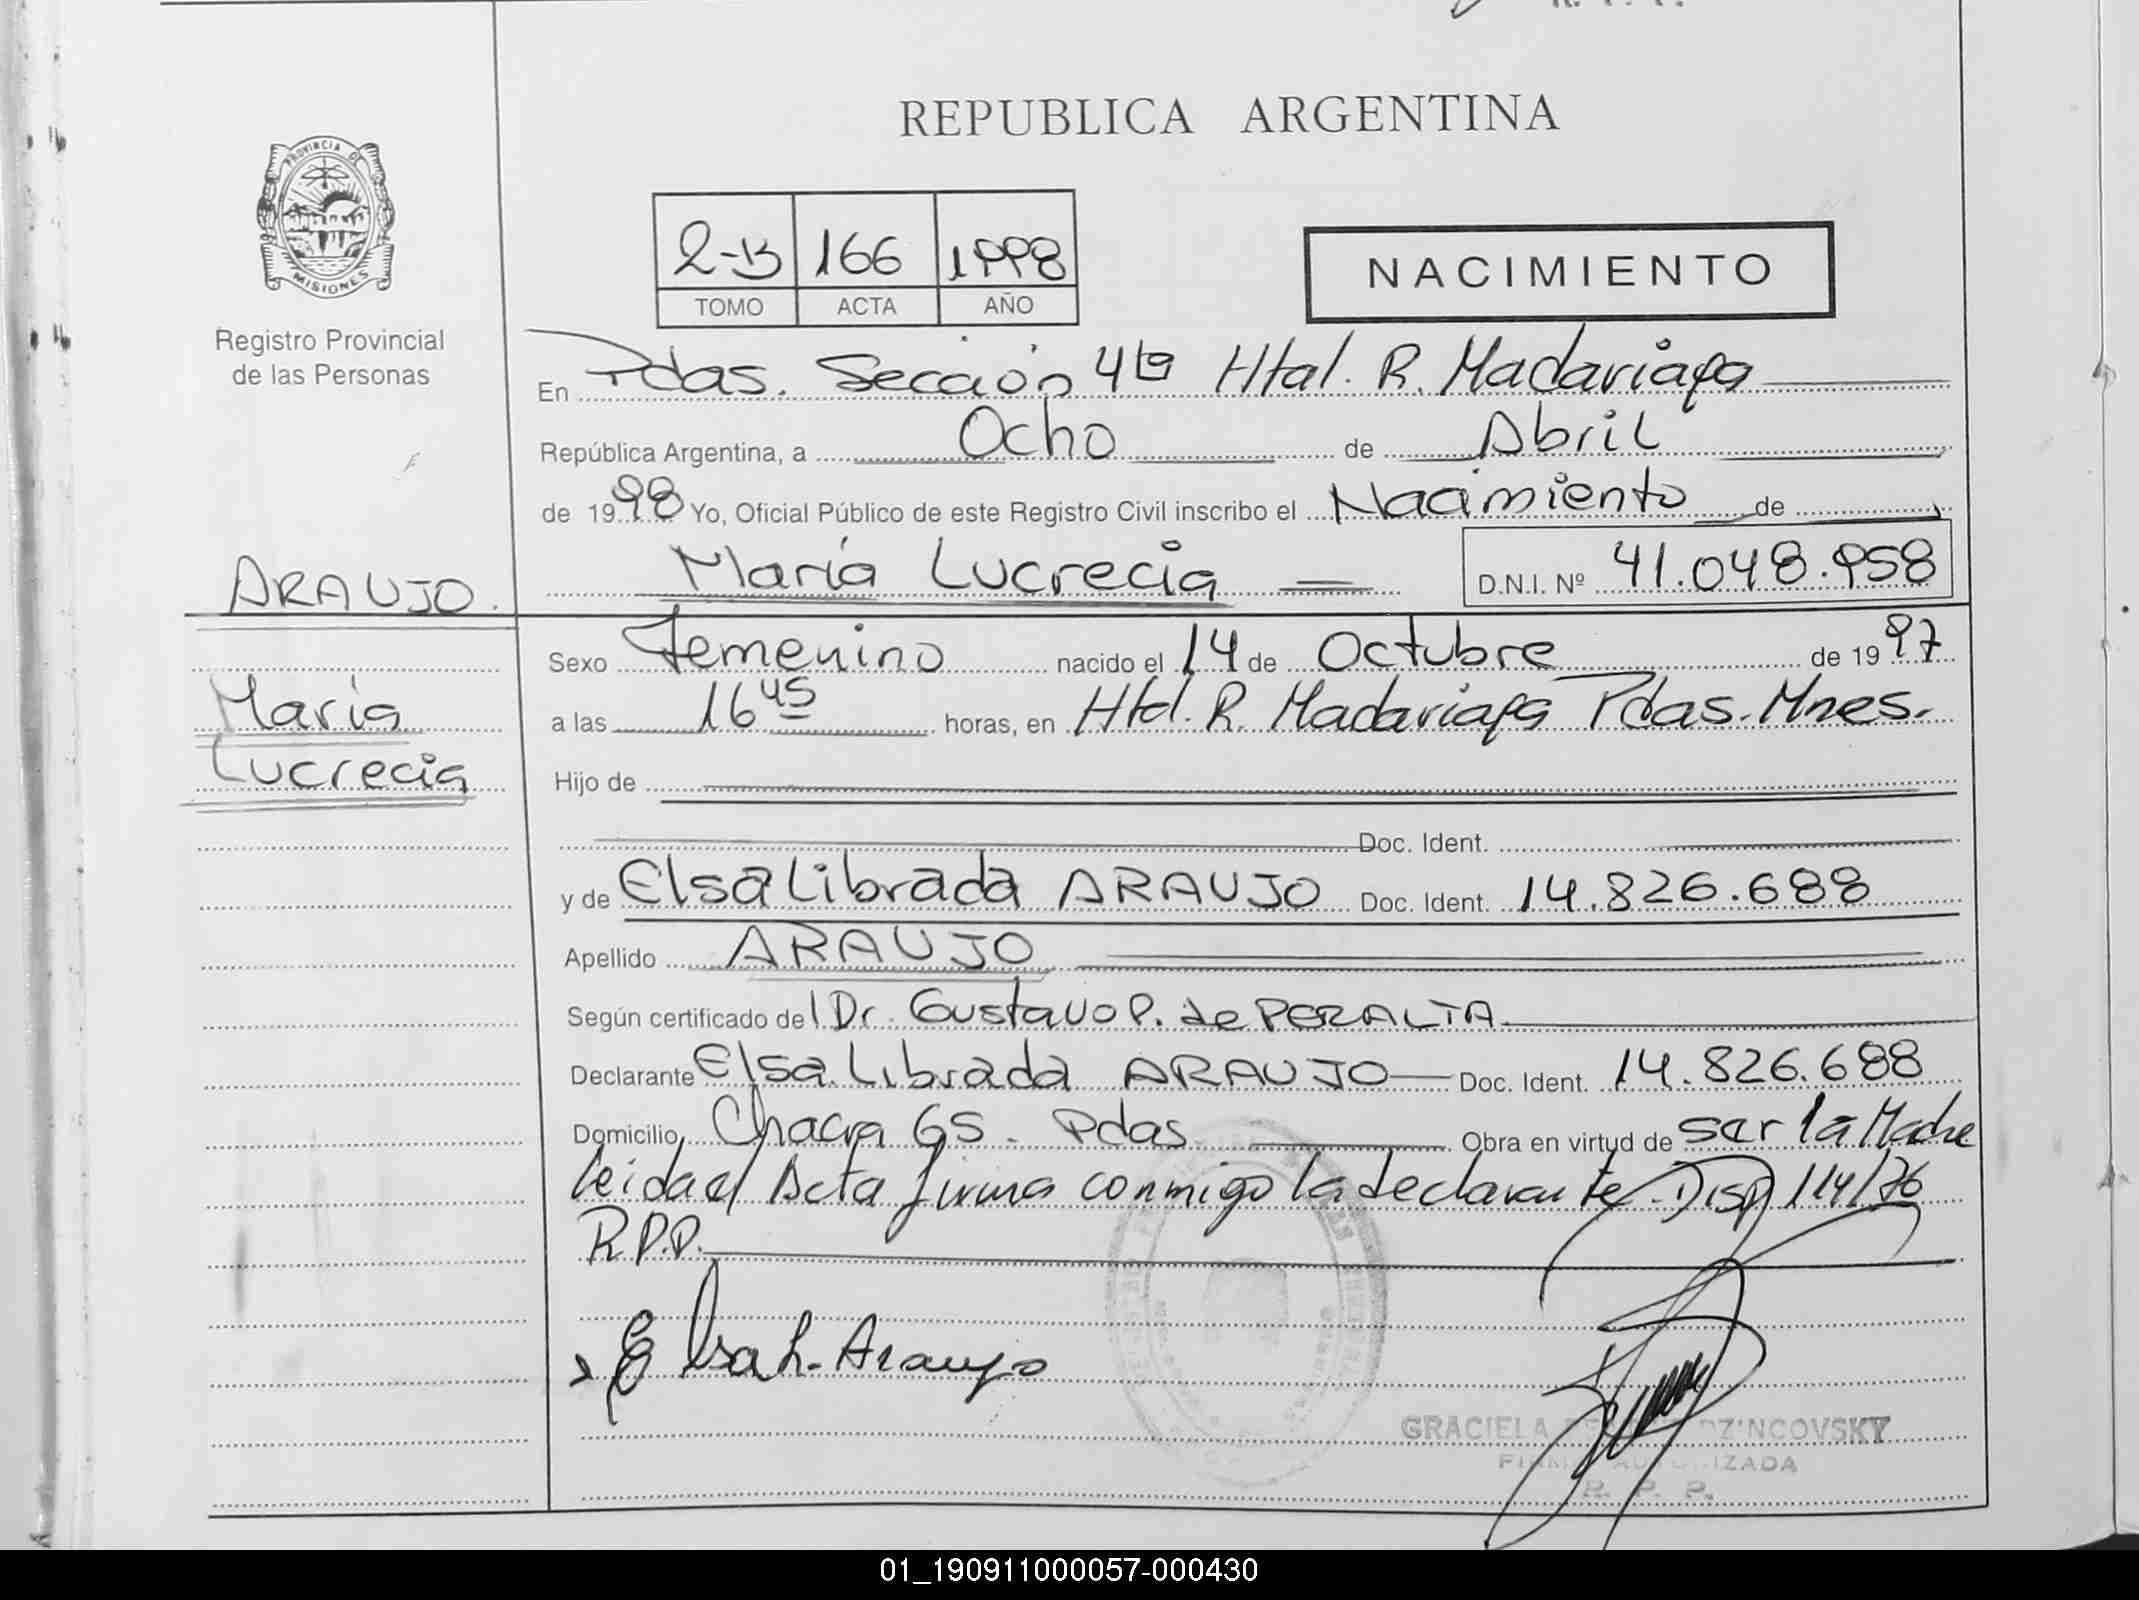 REPUBLICA ARGENTINA
PROVINCIA DE
MISIONES
Registro Provincial
de las Personas
2-B 166 1998
TOMO ACTA AÑO
NACIMIENTO
En Pdas. Sección 4ta Htal. R. Madariaga
República Argentina, a Ocho de Abril
de 1998 Yo, Oficial Público de este Registro Civil inscribo el Nacimiento de
María Lucrecia D.N.I. Nº 41.048.958
ARAUJO.
María
Lucrecia
Sexo Femenino nacido el 14 de Octubre de 1997
a las 16 45 horas, en Htal. R. Madariaga Pdas. Mnes.
Hijo de
Doc. Ident.
y de Elsa Librada ARAUJO Doc. Ident. 14.826.688
Apellido ARAUJO
Según certificado del Dr. Gustavo P. de PERALTA
Declarante Elsa Librada ARAUJO Doc. Ident. 14.826.688
Domicilio Chacra 65 - Pdas Obra en virtud de ser la Madre
leida el Acta firma conmigo la declarante Disp 114/76
R.P.P.
Elsa L. Araujo
GRACIELA DZINCOVSKY
FIRMA AUTORIZADA
R. P. P.
01_190911000057-000430